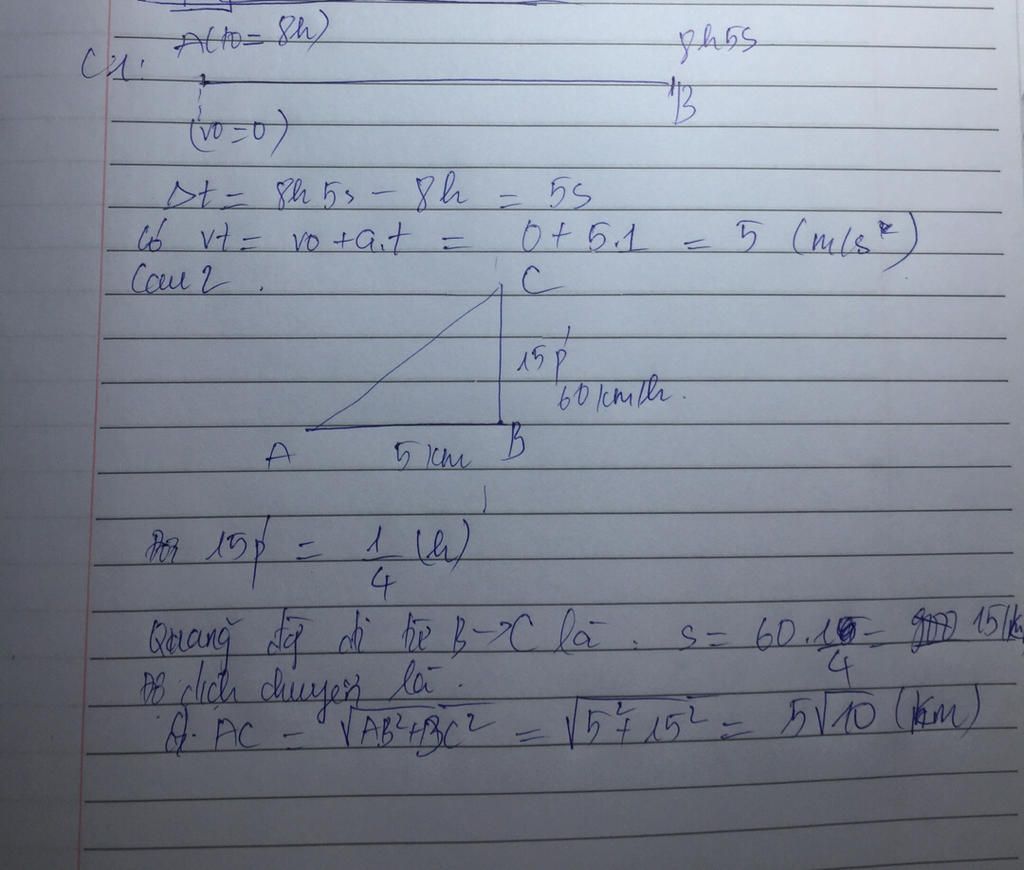 A(t0 = 8h)
8h5s
C1:
B
(v0 = 0)
Δt = 8h 5s - 8h = 5s
Có vt = v0 + a.t = 0 + 5.1 = 5 (m/s)
Câu 2.
C
15p'
60 km/h.
A 5 km B
15p' = 1/4 (h)
Quãng đg đi từ B → C là : s = 60. 1/4 = 15 (k
Độ dịch chuyển là.
d. AC = √AB²+BC² = √5² + 15² = 5√10 (km)